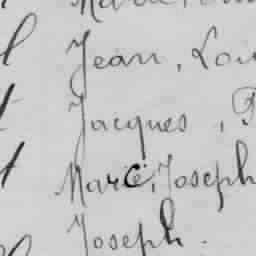 Jean, Lou
Jacques, P
Marc, Joseph
Joseph.